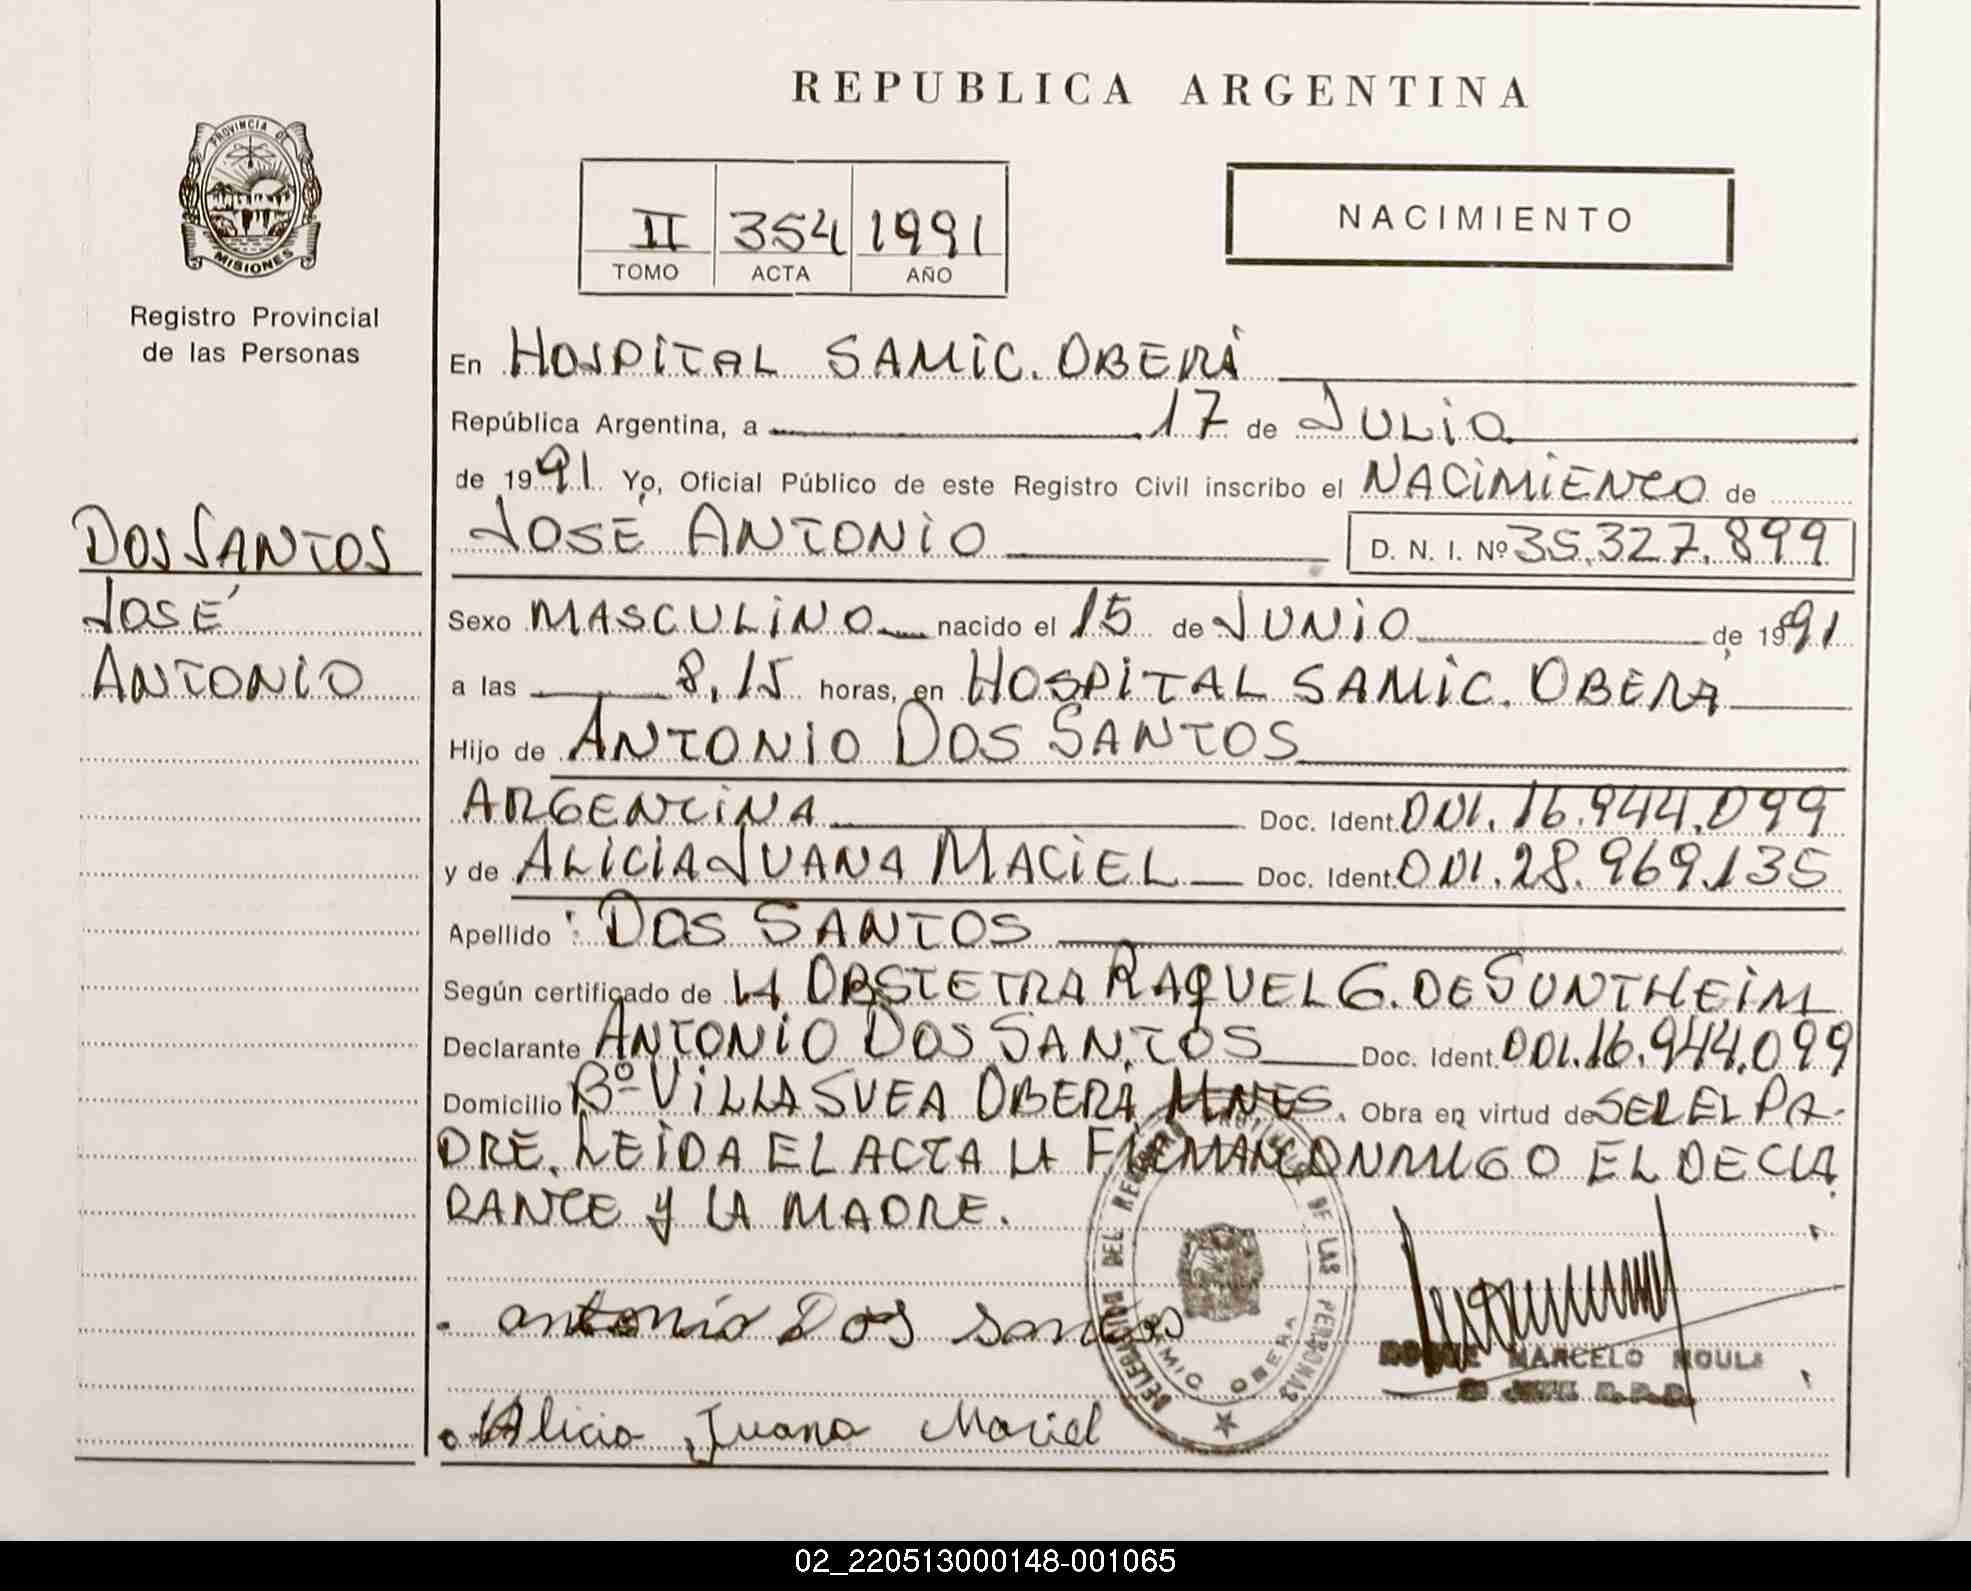 REPUBLICA ARGENTINA
PROVINCIA DE
MISIONES
Registro Provincial
de las Personas
II 354 1991
TOMO ACTA AÑO
NACIMIENTO
En HOSPITAL SAMIC. OBERÁ
República Argentina, a 17 de JULIO
de 1991 Yo, Oficial Público de este Registro Civil inscribo el NACIMIENTO de
JOSÉ ANTONIO D. N. I. Nº 35.327.899
DOS SANTOS
JOSÉ
ANTONIO
Sexo MASCULINO nacido el 15 de JUNIO de 1991
a las 8,15 horas, en HOSPITAL SAMIC. OBERÁ
Hijo de ANTONIO DOS SANTOS
ARGENTINA Doc. Ident. DNI. 16.944.099
y de ALICIA JUANA MACIEL Doc. Ident. DNI. 28.969.135
Apellido : DOS SANTOS
Según certificado de LA OBSTETRA RAQUEL G. DE SUNTHEIM
Declarante ANTONIO DOS SANTOS Doc. Ident. DNI. 16.944.099
Domicilio Bº VILLA SVEA OBERÁ MNES. Obra en virtud de SER EL PA-
DRE. LEIDA EL ACTA LA FIRMAN CONMIGO EL DECLA
RANTE Y LA MADRE.
antonio Dos Santos
Alicia Juana Maciel
DELEGACION DEL REGISTRO PROVINCIAL DE LAS PERSONAS
OBERA
MARCELO
02_220513000148-001065